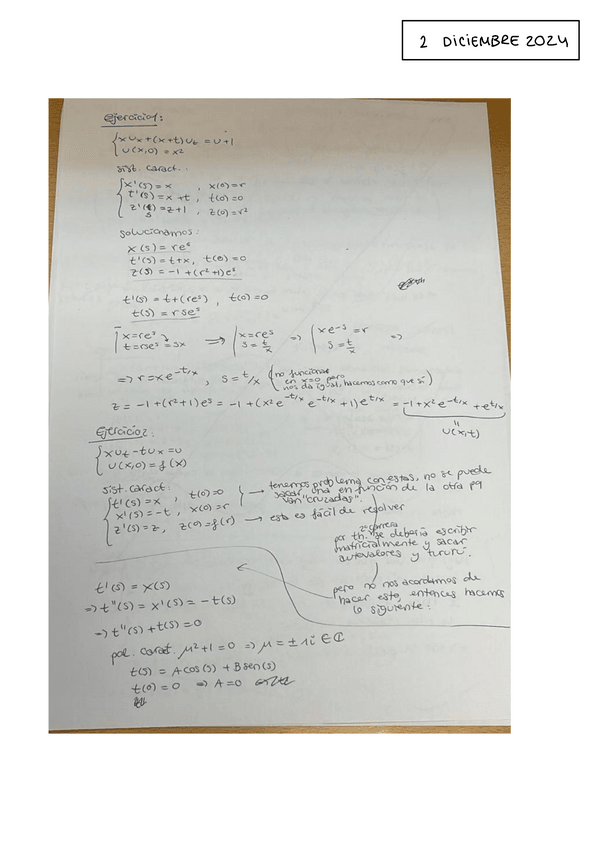 2 DICIEMBRE 2024
Ejercicio1:
{ x u_x + (x+t) u_t = u+1
u(x,0) = x²
sist. caract.:
{ x'(s) = x , x(0)=r
t'(s) = x+t , t(0)=0
z'(s) = z+1 , z(0)=r²
solucionamos:
x(s) = re^s
t'(s) = t+x, t(0)=0
z(s) = -1 + (r²+1)e^s
t'(s) = t+(re^s) , t(0)=0
t(s) = r s e^s
| x=re^s | x=re^s | xe^-s = r
| t=rse^s = sx ⇒ | s = t/x ⇒ | s = t/x ⇒
⇒ r = xe^-t/x , s = t/x (no funciona en x=0 pero nos da igual, hacemos como que sí)
z = -1 + (r²+1)e^s = -1 + (x² e^-t/x e^-t/x + 1) e^t/x = -1 + x² e^-t/x + e^t/x
u(x,t)
Ejercicio2:
{ x u_t - t u_x = u
u(x,0) = f(x)
sist. caract:
{ t'(s) = x , t(0)=0 } → tenemos problema con estas, no se puede
x'(s) = -t , x(0)=r sacar una en función de la otra pq
van "cruzadas".
z'(s) = z, z(0)=f(r) → esta es fácil de resolver
por th. se debería escribir
matricialmente y sacar
autovalores y tururú.
pero no nos acordamos de
hacer esto, entonces hacemos
lo siguiente:
t'(s) = x(s)
⇒ t''(s) = x'(s) = -t(s)
⇒ t''(s) + t(s) = 0
pol. caract. μ²+1=0 ⇒ μ = ± 1i ∈ ℂ
t(s) = A cos(s) + B sen(s)
t(0) = 0 ⇒ A=0